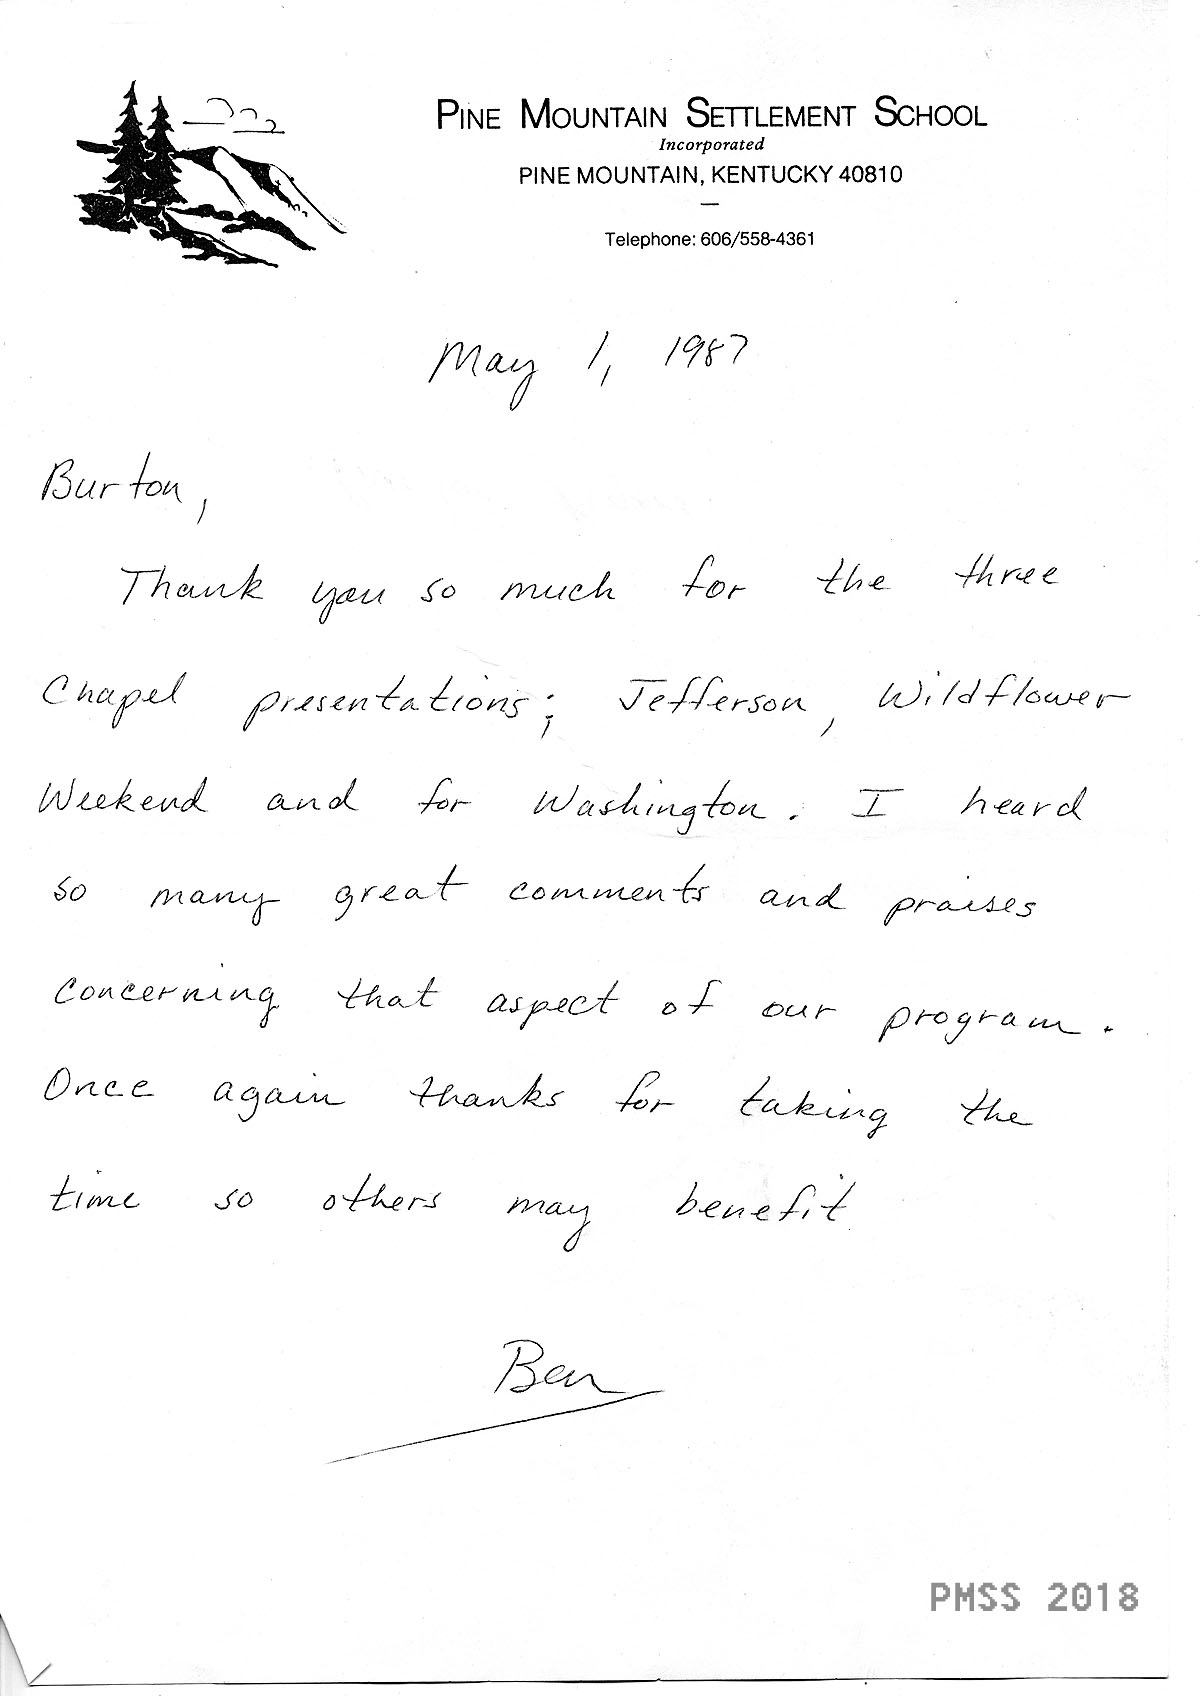 PINE MOUNTAIN SETTLEMENT SCHOOL
Incorporated
PINE MOUNTAIN, KENTUCKY 40810
—
Telephone: 606/558-4361
May 1, 1987
Burton,
Thank you so much for the three
Chapel presentations; Jefferson, Wildflower
Weekend and for Washington. I heard
so many great comments and praises
concerning that aspect of our program.
Once again thanks for taking the
time so others may benefit
Ben
PMSS 2018